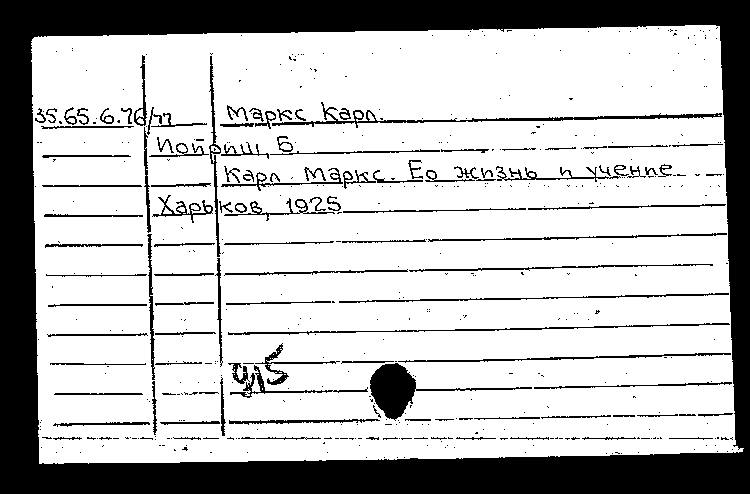 35.65.6.76/77 Маркс, Карл.
Йойриш, Б.
Карл Маркс. Ео жизнь и учение
Харьков, 1925